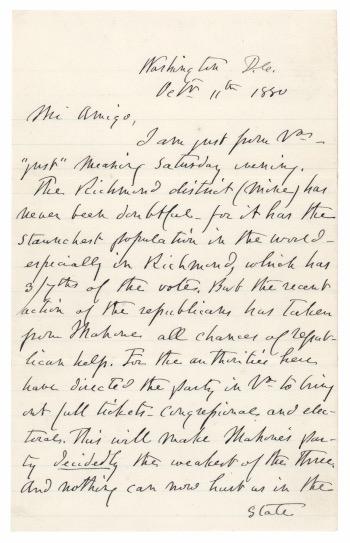 Washington D.C.
Octbr 11th 1880
Mi Amigo,
I am just from Va -
"just" meaning Saturday evening.
The Richmond district (mine) has
never been doubtful - for it has the
staunchest population in the world -
especially in Richmond, which has
3/7ths of the votes. But the recent
action of the republicans has taken
from Mahone all chances of repub-
lican help. For the authorities here
have directed the party in Va to bring
out full tickets - Congressional and elec-
toral. This will make Mahone's par-
ty decidedly the weakest of the three
and nothing can now hurt us in the
State